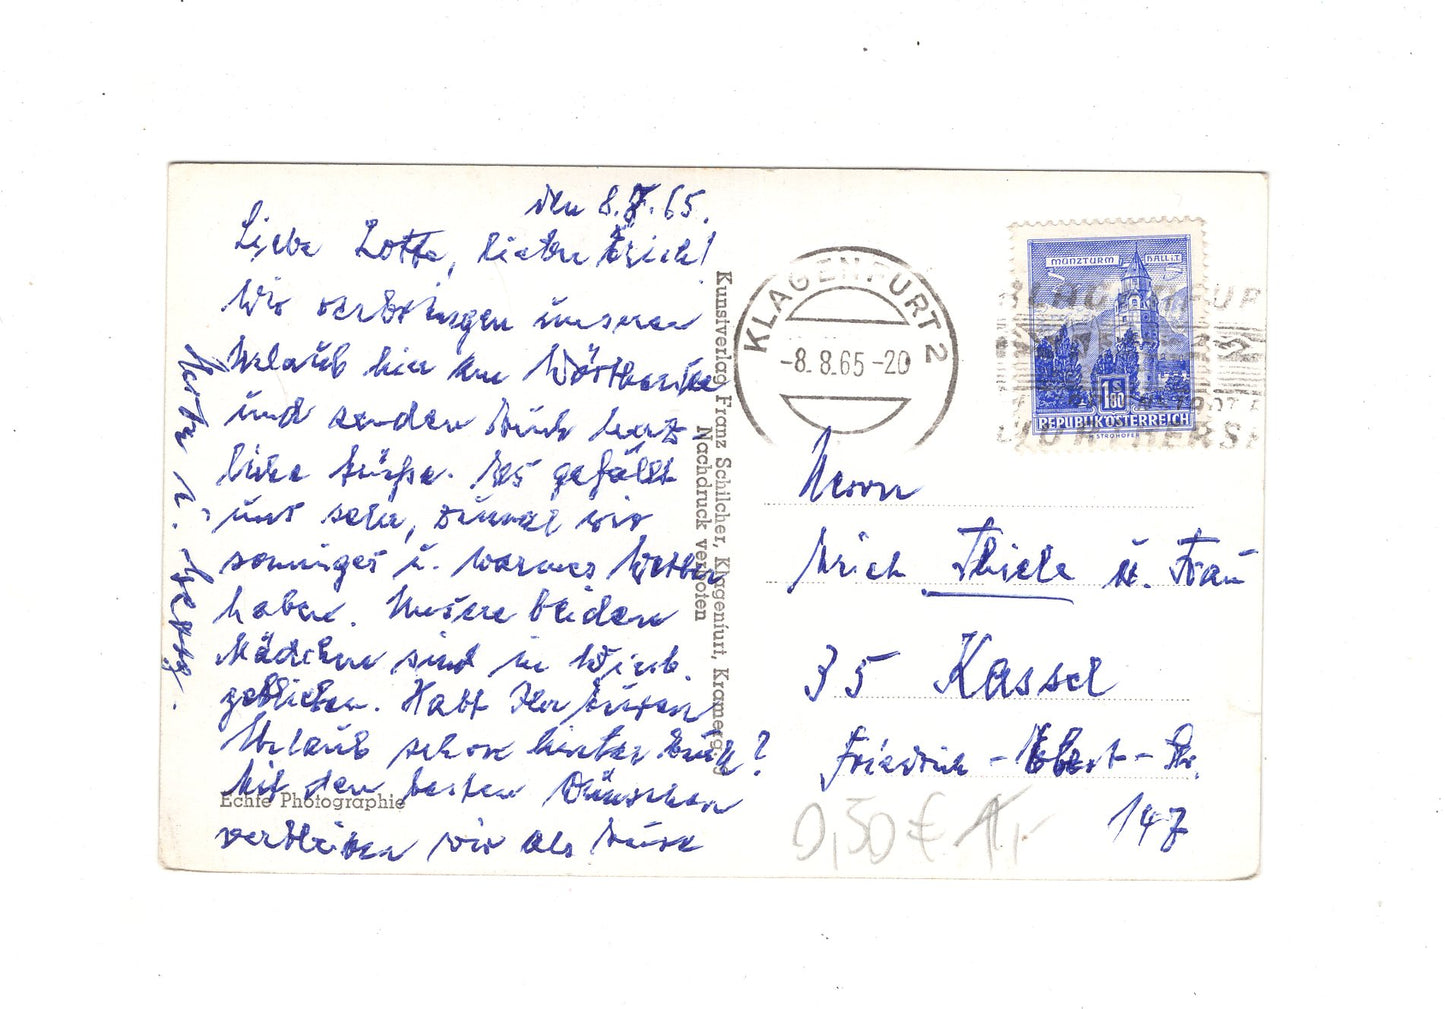 den 8.8.65.
Liebe Lotte, lieber Erich!
Wir verbringen unseren
Urlaub hier am Wörthersee
und senden Euch herz
liche Grüße. Es gefällt
uns sehr, zumal wir
sonniges u. warmes Wetter
haben. Unsere beiden
Mädchen sind in
geblieben. Habt Ihr Euren
Urlaub schon hinter Euch?
Mit den besten Wünschen
verbleiben wir als Eure
u. Georg.
Echte Photographie
Kunstverlag Franz Schilcher, Klagenfurt, Kramerg. 9
Nachdruck verboten
KLAGENFURT 2
-8. 8.65-20
MÜNZTURM HALL i.T.
1S80
REPUBLIK ÖSTERREICH
STROHOFER
Herrn
Erich Thiele u. Frau
35 Kassel
Friedrich-Ebert-Str.
147
0,50 € 1,-